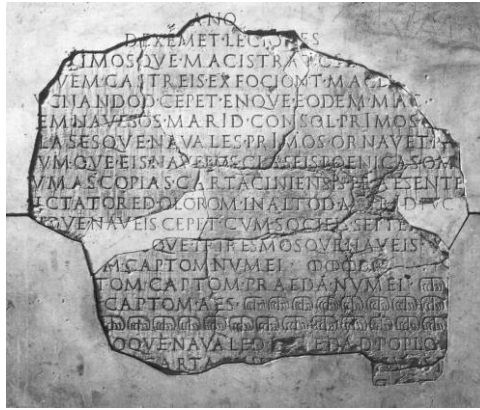 ANO
D EXEMET LECIONES
XIMOSQVE MACISTRATOS
VEM CASTREIS EXFOCIONT MACEL
CNANDOD CEPET ENQVE EODEM MAC
EM NAVEBOS MARID CONSOL PRIMOS
LASESQVE NAVALES PRIMOS ORNAVET PA
VMQVE EIS NAVEBOS CLASEIS POENICAS OM
VMAS COPIAS CARTACINIENSIS PRAESENTE
CTATORED OLOROM IN ALTOD MARID PVC
QVE NAVEIS CEPET CVM SOCIEIS SEPTE
QVE TRIRESMOSQVE NAVEIS
M CAPTOM NVMEI
TOM CAPTOM PRAEDA NVMEI
CAPTOM AES
OQVE NAVALED PRAEDAD POPLO